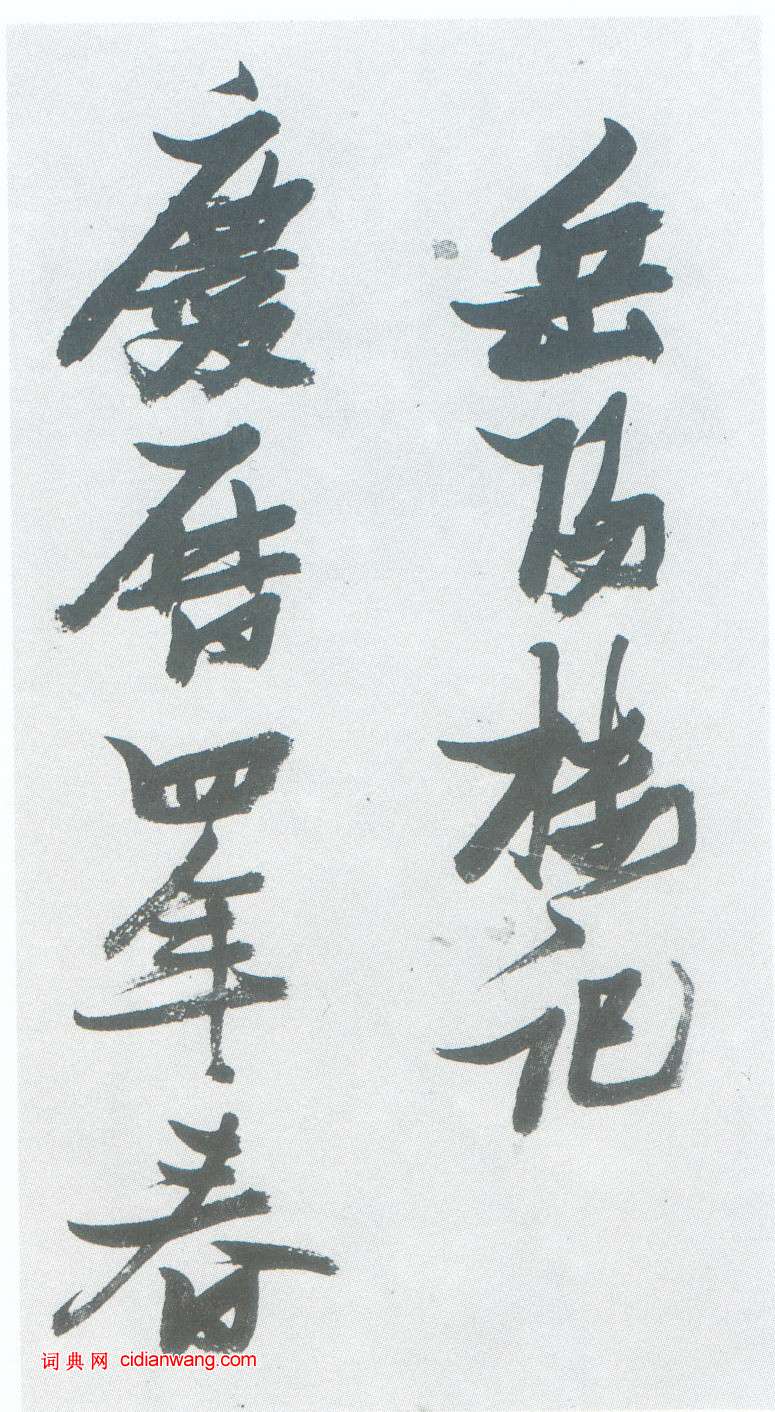 岳阳楼记
慶历四年春
词典网 cidianwang.com